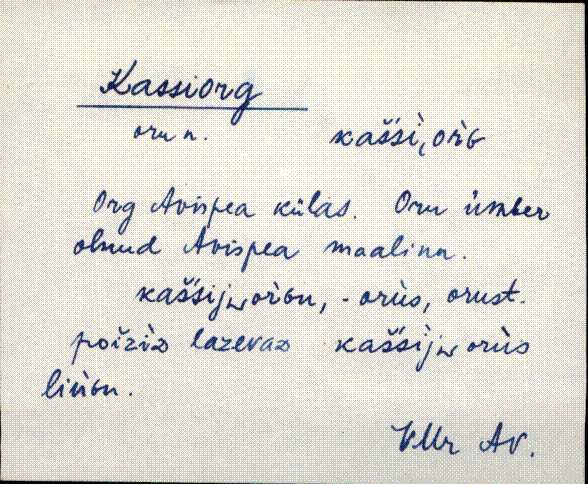 Kassiorg
oru n. kašśi, orG
Org Avispea külas. Oru ümber
olnud Avispea maalinn.
kašśijw orGu, - orùs, orust.
poiziD lazevaD kašśijw orùs
liùGu.
VMr AV.